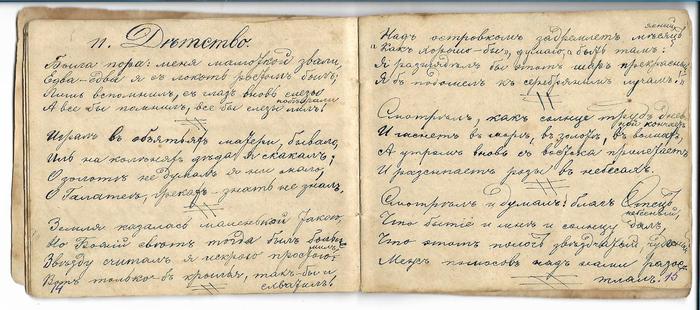 11. Дѣтство.
Была пора: меня малюткой звали,
Едва-едва я съ локоть ростомъ былъ;
Лишь вспомнилъ, съ глазъ вновь слезы
побѣжали
А все бы помнилъ, все бы слезы лилъ!
Игралъ въ объятьяхъ матери, бывало,
Иль на колѣняхъ дѣда я скакалъ;
О золотѣ не думалъ я ни мало,
О Галатеѣ, грекахъ - знать не зналъ.
Земля казалась маленькой такою,
Но Божій свѣтъ тогда былъ больше
милъ
Звѣзду считалъ я искрою простою.
Вотъ только-бъ крылья, такъ-бы и
схватилъ!
14
Надъ островкомъ задремлетъ мѣсяцъ
ясный
„Какъ хорошо-бы", думаю, „быть тамъ:
Я разглядѣлъ бы этотъ шаръ прекрасный
Я бъ подошелъ къ серебрянымъ лучамъ."
Смотрѣлъ, какъ солнце трудъ днев-
ной кончаетъ
И гаснетъ въ морѣ, въ золотѣ, въ волнахъ,
А утромъ вновь съ востока прилетаетъ
И разсыпаетъ розы въ небесахъ.
Смотрѣлъ и думалъ: благъ Отецъ
небесный,
Что бытіе и мнѣ и солнцу далъ,
Что этотъ поясъ звѣздчатый, чудесный
Межъ полюсовъ надъ нами разос-
тлалъ.
15